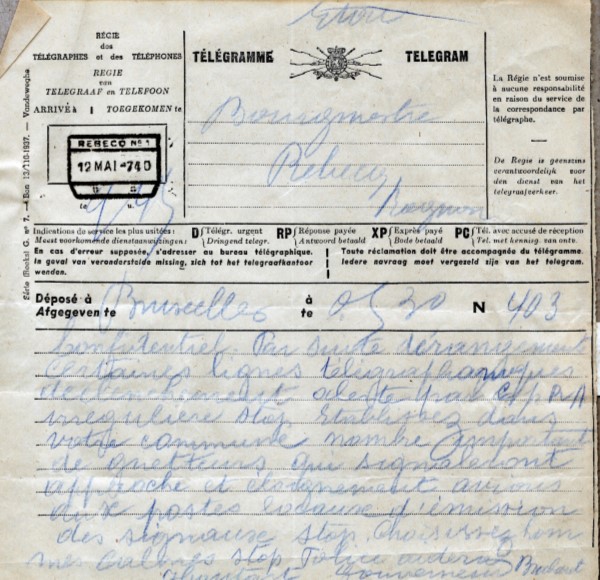 Etat
RÉGIE
des
TÉLÉGRAPHES et des TÉLÉPHONES
REGIE
van
TELEGRAAF en TELEFOON
ARRIVÉ à TOEGEKOMEN te
REBECQ N°1
12 MAI -740
te u.
9/45
TÉLÉGRAMME TELEGRAM
Bourgmestre
Rebecq
Rognon
La Régie n'est soumise
à aucune responsabilité
en raison du service de
la correspondance par
télégraphe.
De Regie is geenszins
verantwoordelijk voor
den dienst van het
telegraafverkeer.
Série (Bloeks) G. n° 7. — Bon 13/110-1937. — Vandeweghe
Indications de service les plus usitées:
Meest voorkomende dienstaanwijzingen:
D Télégr. urgent
Dringend telegr.
RP Réponse payée
Antwoord betaald
XP Exprès payé
Bode betaald
PC Tél. avec accusé de réception
Tel. met kennisg. van ontv.
En cas d'erreur supposée, s'adresser au bureau télégraphique.
In geval van veronderstelde missing, zich tot het telegraafkantoor
wenden.
Toute réclamation doit être accompagnée du télégramme.
Iedere navraag moet vergezeld zijn van het telegram.
Déposé à
Afgegeven te
Bruxelles
à
te
0530
N 403
Confidentiel. Par suite dérangement
certaines lignes télégraphiques
alerte par
irrégulière stop Etablissez dans
votre commune nombre important
de guetteurs qui signaleront
approche et éloignement avions
aux postes locaux d'émission
des signaux stop Choisissez hom
mes calmes stop Police aidera
Gouverneur Brabant